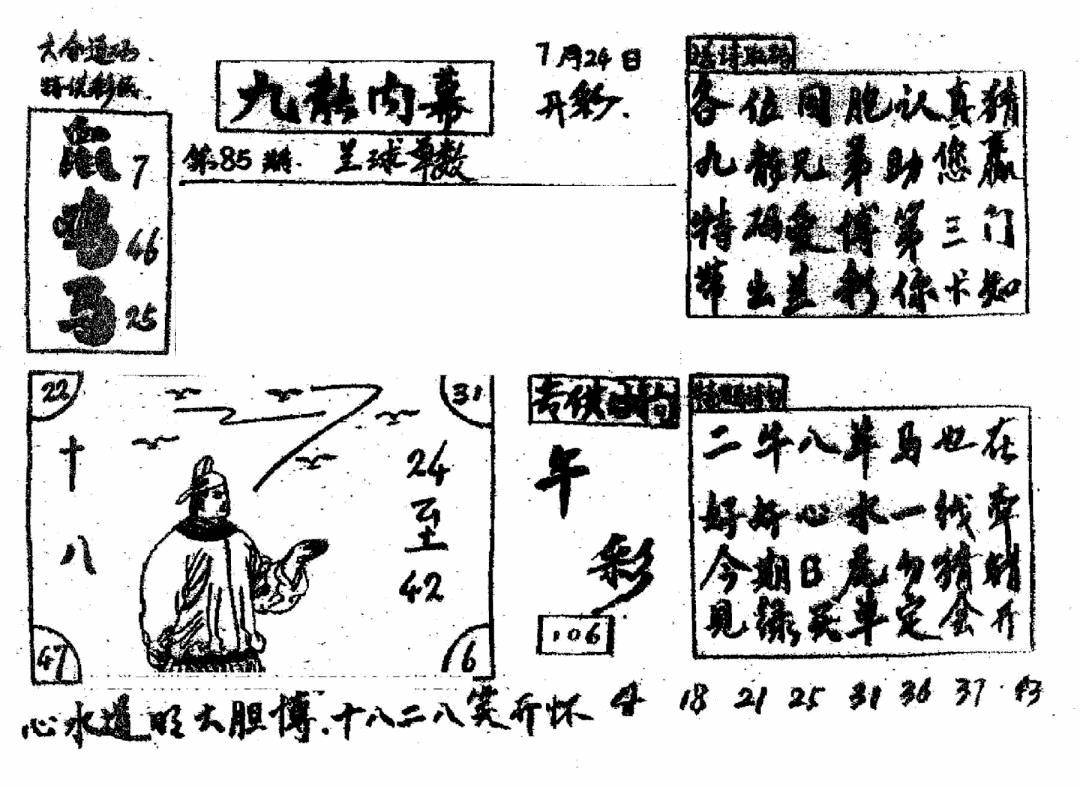 六合通码
特供彩民
鼠 7
鸡 46
马 25
九龙内幕
第85期. 兰球单数
7月24日
开彩.
各位同胞认真猜
九龙兄弟助您赢
特码爱博第三门
带出兰彩你卡知
22
31
十八
24
至
42
47
6
专供
午
彩
106
二牛八羊马也在
好好心水一线牵
今期日尾勿猜错
见绿买单定会开
心水道旺大胆博.十八二八笑开怀
18 21 25 31 36 37 43